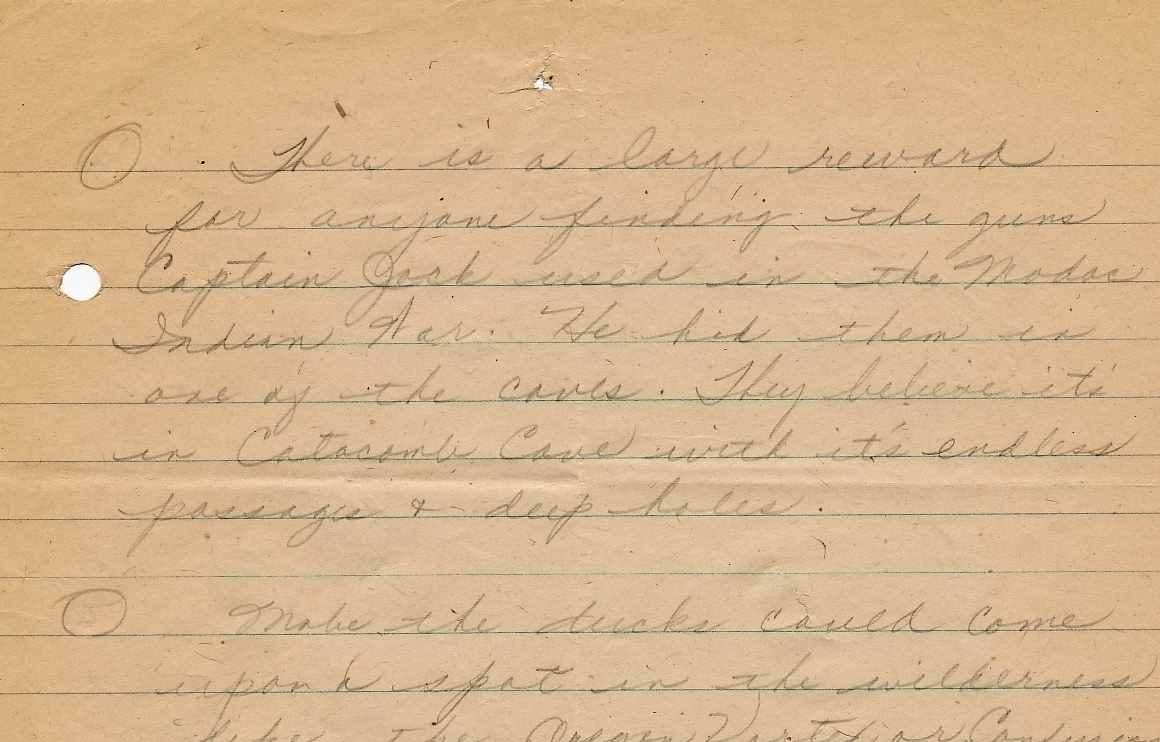 There is a large reward
for anyone finding the guns
Captain Jack used in the Modoc
Indian War. He hid them in
one of the caves. They believe it's
in Catacomb Cave with it's endless
passages & deep holes.
Mabe the ducks could come
upon a spot in the wilderness
like the Oregon Vortex or